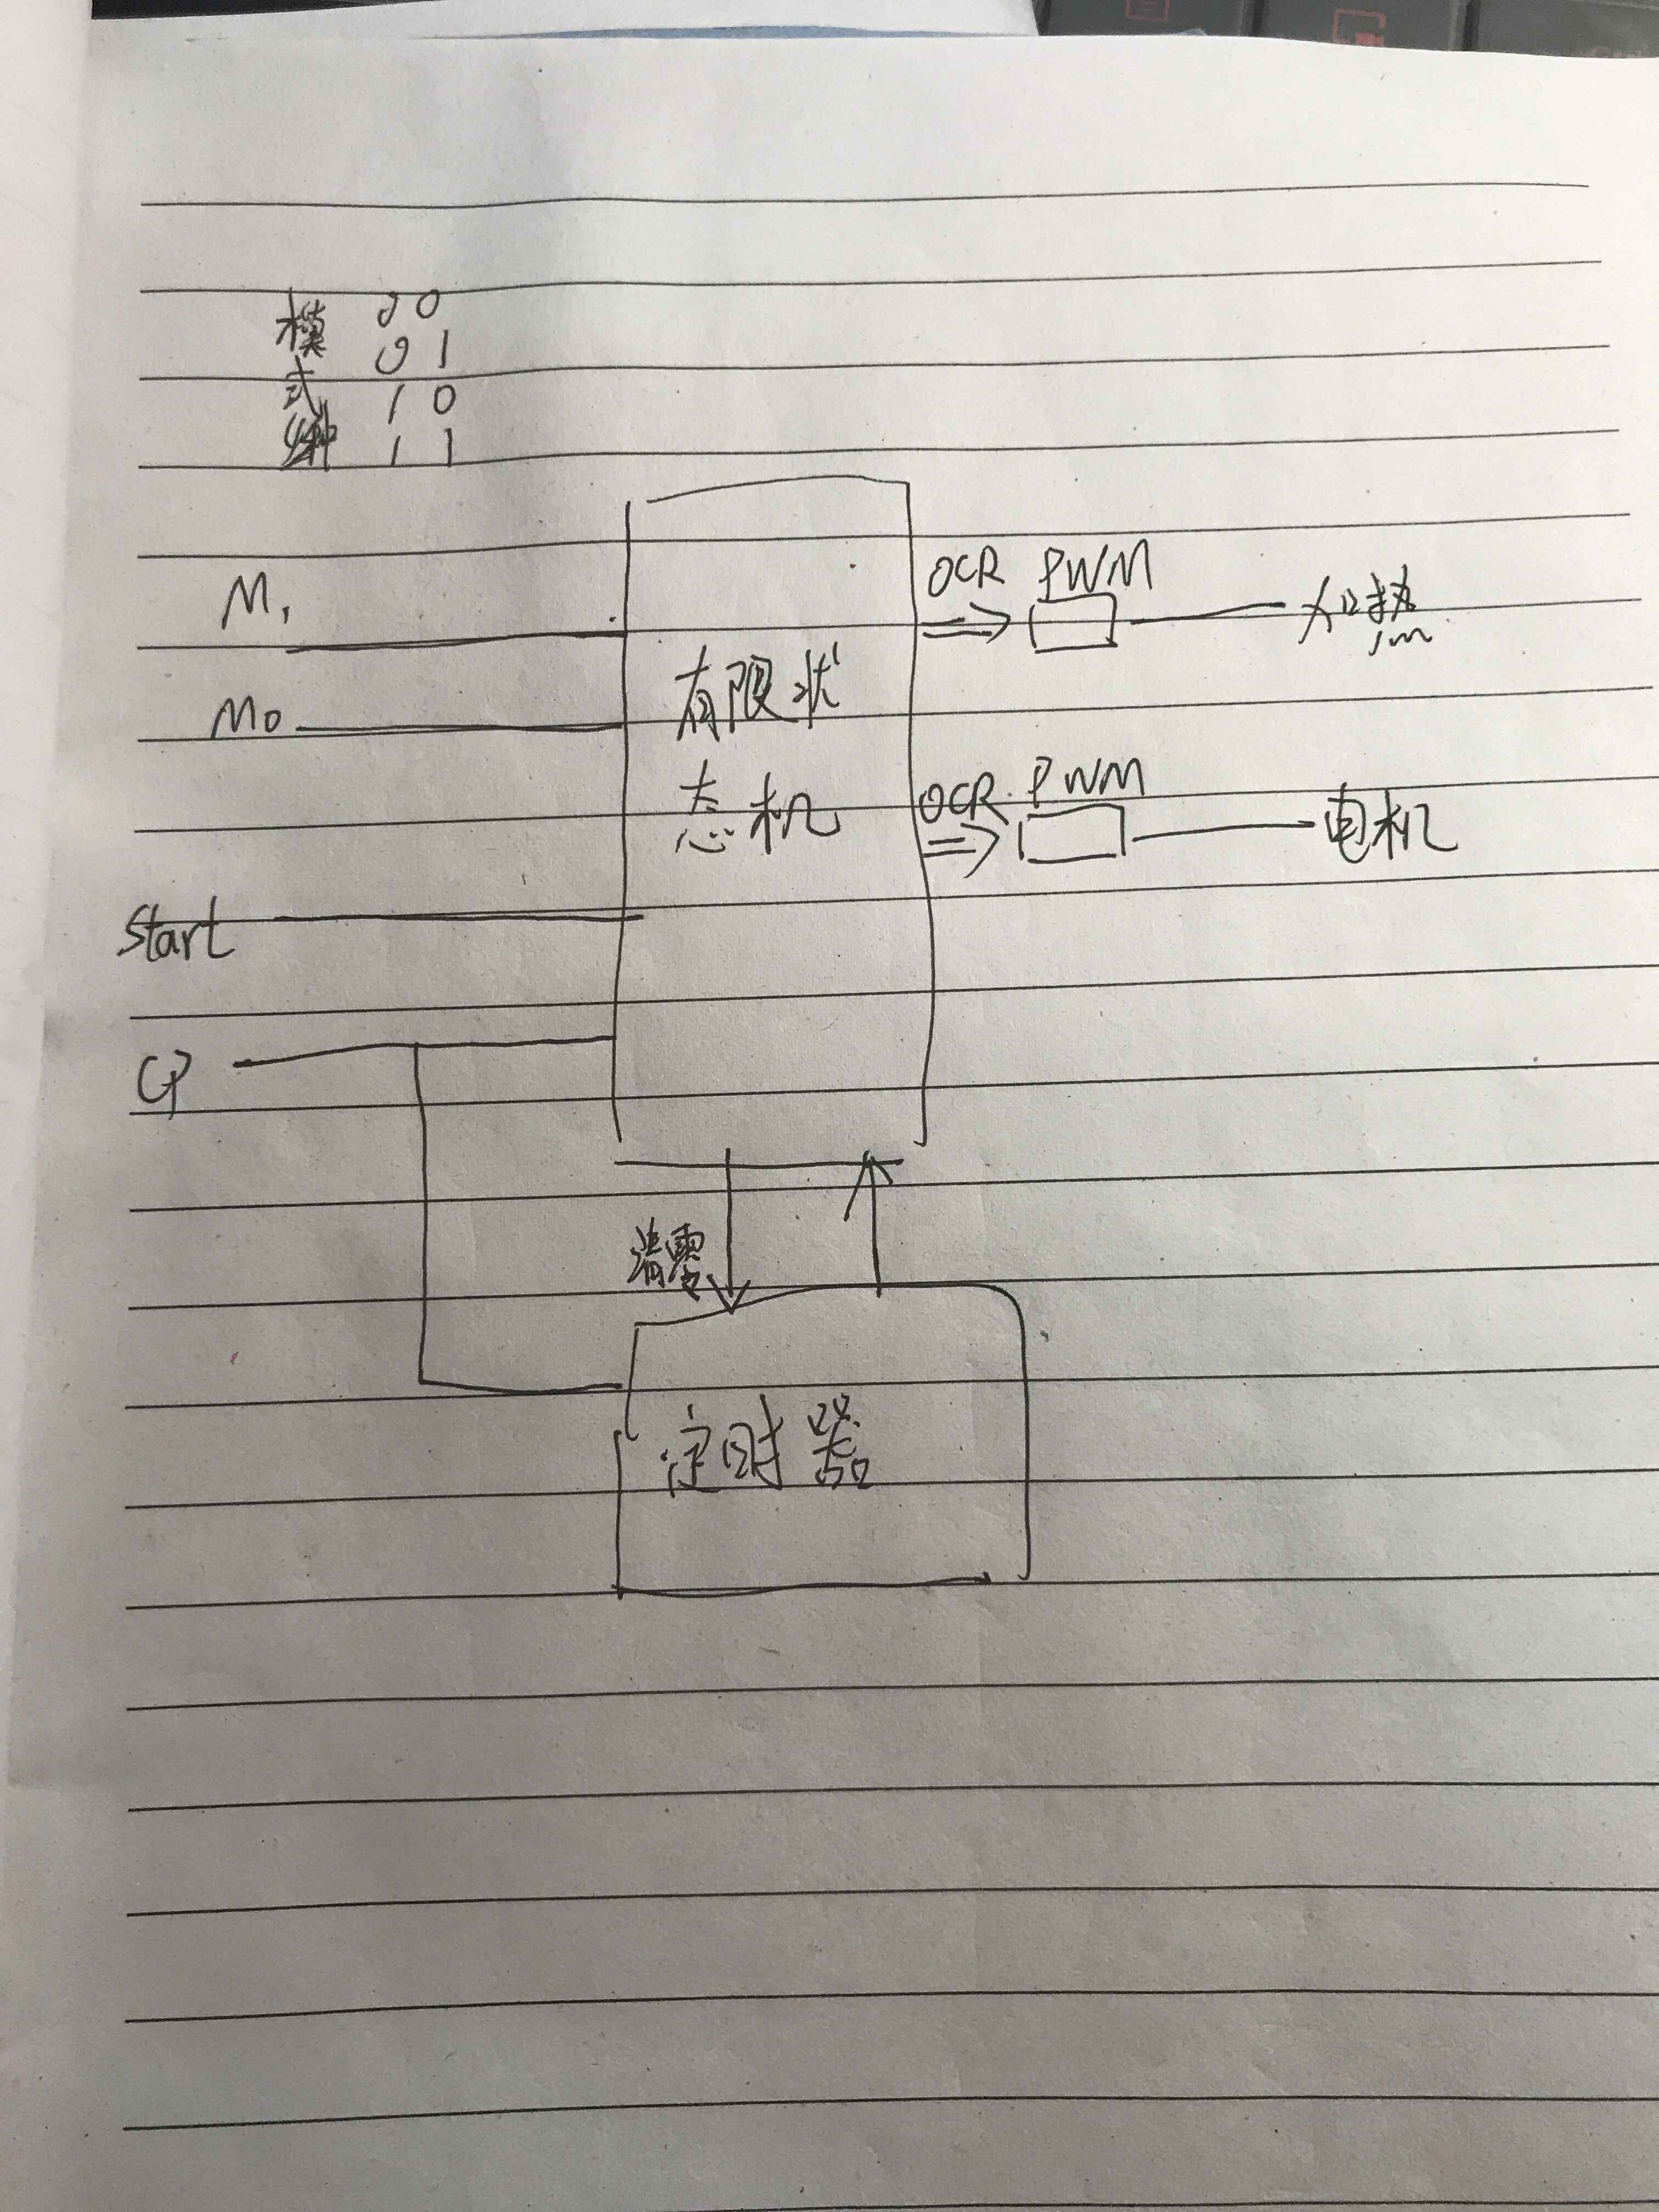 模 00
01
式 10
4种 11
M1
OCR PWM
加热
M0
有限状
态机
OCR PWM
电机
Start
CP
清零
定时器